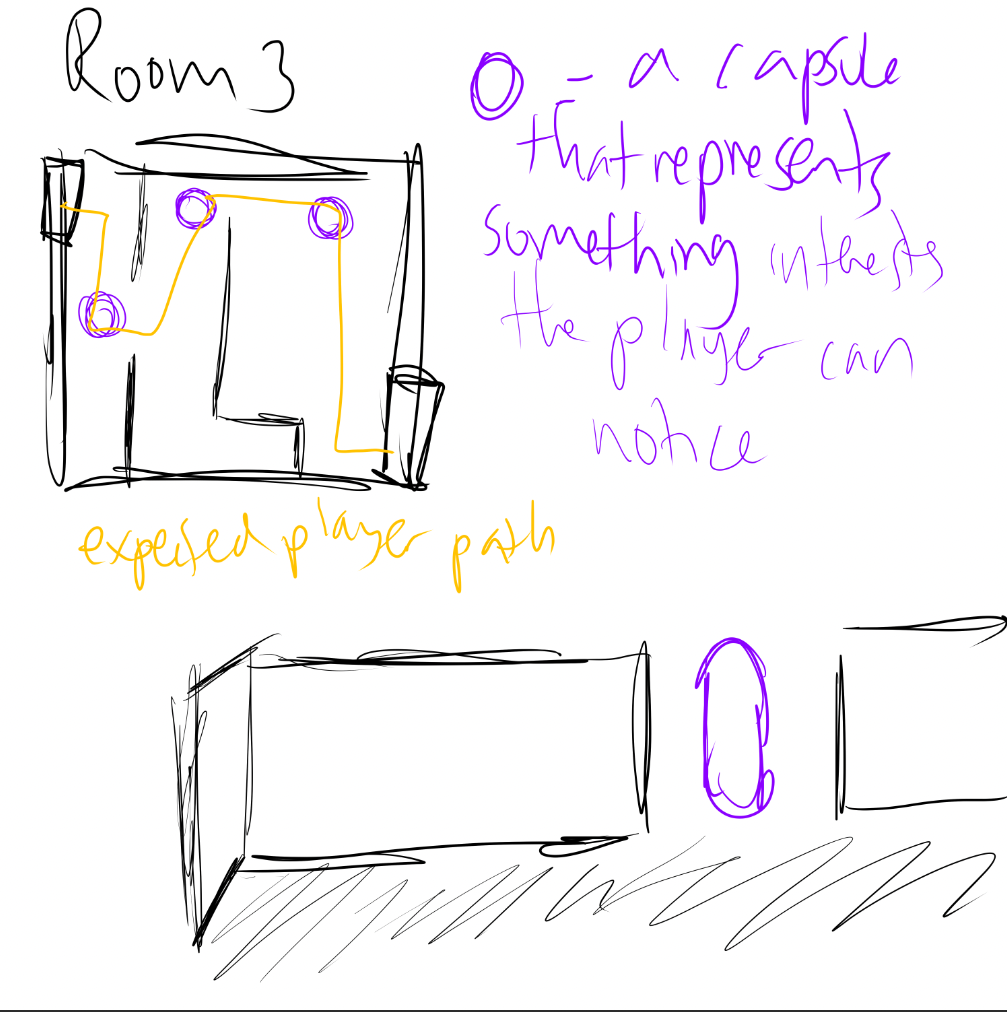 Room 3
O - a capsule
that represents
something intrests
the player can
notice
expected player path